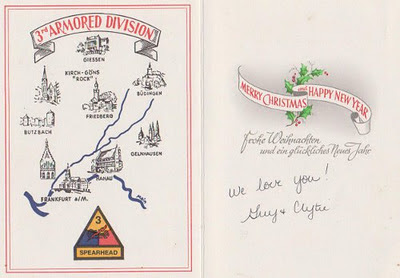 3rd ARMORED DIVISION
GIESSEN
KIRCH-GÖNS
"ROCK"
BÜDINGEN
BUTZBACH
FRIEDBERG
GELNHAUSEN
HANAU
FRANKFURT a/M.
3
SPEARHEAD
MERRY CHRISTMAS and HAPPY NEW YEAR
Frohe Weihnachten
und ein glückliches Neues Jahr
We love you!
Guy & Clytie